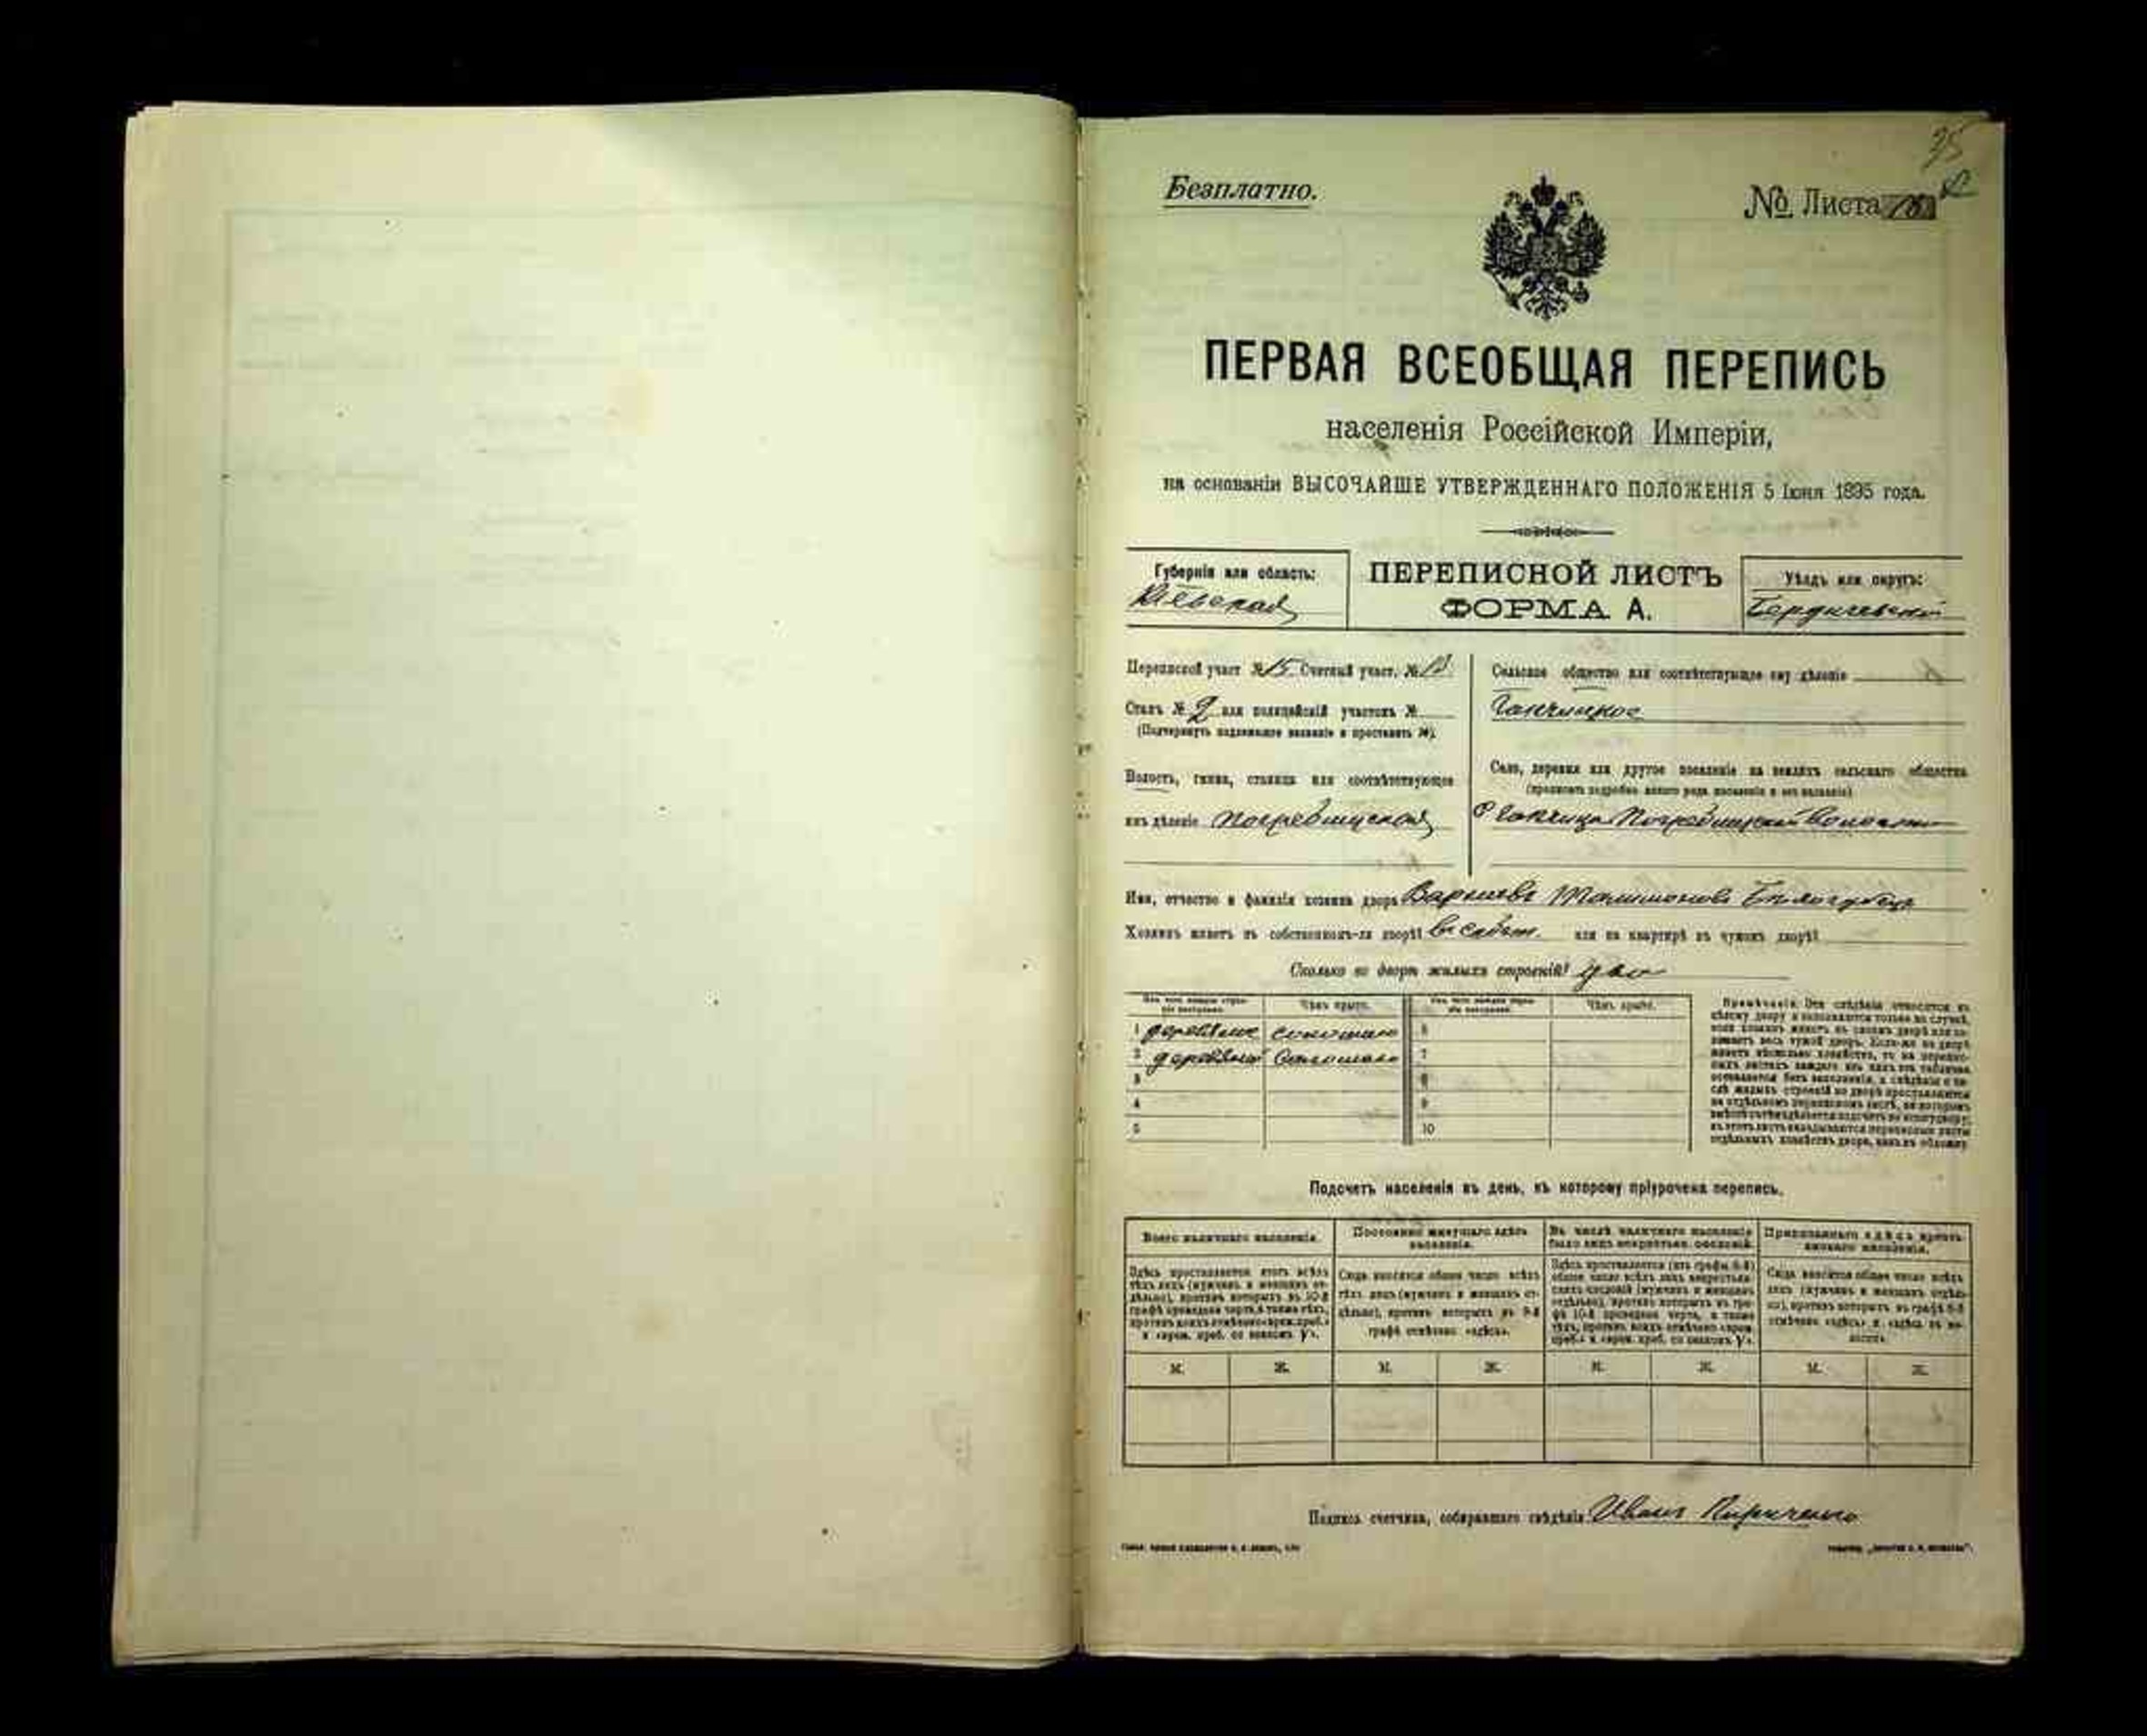 35
Безплатно.
№ Листа
ПЕРВАЯ ВСЕОБЩАЯ ПЕРЕПИСЬ
населенія Россійской Имперіи,
на основаніи ВЫСОЧАЙШЕ УТВЕРЖДЕННАГО ПОЛОЖЕНІЯ 5 Іюня 1895 года.
Губернія или область:
Кіевская
ПЕРЕПИСНОЙ ЛИСТЪ
ФОРМА А.
Уѣздъ или округъ:
Бердичевскій
Переписной участ. № 15 Счетный участ. №
Станъ № 2 или полицейскій участокъ №
(Подчеркнуть надлежащее названіе и проставить №).
Волость, гмина, станица или соотвѣтствующее
имъ дѣленіе Погребищская
Сельское общество или соотвѣтствующее ему дѣленіе
Село, деревня или другое поселеніе на земляхъ сельскаго общества
(прописать подробно какого рода поселеніе и его названіе)
Погребищской Волости
Имя, отчество и фамилія хозяина двора
Хозяинъ живетъ въ собственномъ-ли дворѣ? или на квартирѣ въ чужомъ дворѣ?
Сколько во дворѣ жилыхъ строеній? два
Изъ чего каждое строеніе построено. Чѣмъ крыто. Изъ чего каждое строеніе построено. Чѣмъ крыто.
1 соломою 6
2 соломою 7
3 8
4 9
5 10
Примѣчаніе. Эти свѣдѣнія относятся къ
цѣлому двору и заполняются только въ случаѣ,
если хозяинъ живетъ въ своемъ дворѣ или за-
нимаетъ весь чужой дворъ. Если-же на дворѣ
имѣется нѣсколько хозяйствъ, то на перепис-
ныхъ листахъ каждаго изъ нихъ эта табличка
оставляется безъ заполненія, а свѣдѣнія о чи-
слѣ жилыхъ строеній во дворѣ проставляются
на отдѣльномъ переписномъ листѣ, на которомъ
отдѣльныхъ хозяйствъ двора, какъ въ обложку.
Подсчетъ населенія въ день, къ которому пріурочена перепись.
Всего наличнаго населенія.
Постоянно живущаго здѣсь населенія.
Въ числѣ наличнаго населенія было лицъ некрестьян. сословій.
Приписаннаго здѣсь крестьянскаго населенія.
Здѣсь проставляется итогъ всѣхъ
тѣхъ лицъ (мужчинъ и женщинъ от-
дѣльно), противъ которыхъ въ 10-й
графѣ проведена черта, а также тѣхъ,
противъ коихъ отмѣчено «врем. преб.»
и «врем. преб. со знакомъ V».
Сюда вносится общее число всѣхъ
тѣхъ лицъ (мужчинъ и женщинъ от-
дѣльно), противъ которыхъ въ 9-й
графѣ отмѣчено «здѣсь».
Здѣсь проставляется (изъ графы 6-й)
общее число всѣхъ лицъ некрестьян-
скихъ сословій (мужчинъ и женщинъ
отдѣльно), противъ которыхъ въ гра-
фѣ 10-й проведена черта, а также
тѣхъ, противъ коихъ отмѣчено «врем.
преб.» и «врем. преб. со знакомъ V».
Сюда вносится общее число всѣхъ
лицъ (мужчинъ и женщинъ отдѣль-
но), противъ которыхъ въ графѣ 8-й
отмѣчено «здѣсь» и «здѣсь въ во-
лости».
М. Ж. М. Ж. М. Ж. М. Ж.
Подпись счетчика, собиравшаго свѣдѣнія Иванъ Кириченко